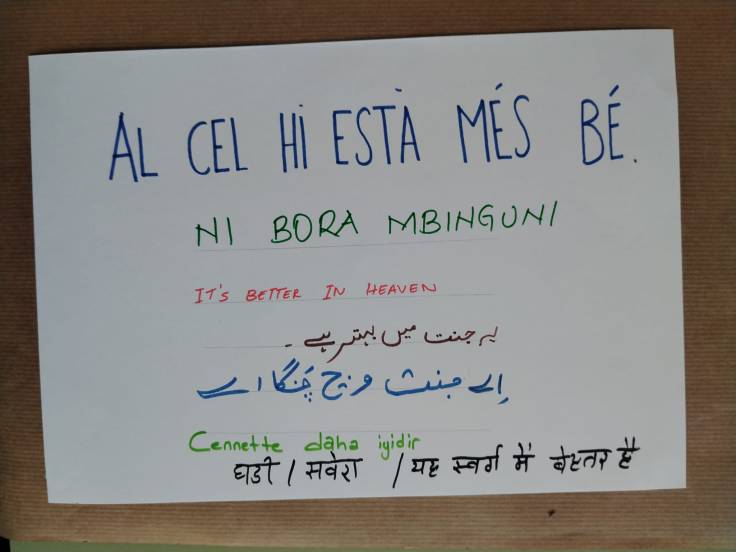 AL CEL HI ESTÀ MÉS BÉ.
NI BORA MBINGUNI
IT'S BETTER IN HEAVEN
یہ جنت میں بہتر ہے ۔
اِے جنت وِچ چَنگا اے
Cennette daha iyidir
घडी / सवेरा / यह स्वर्ग में बेहतर है